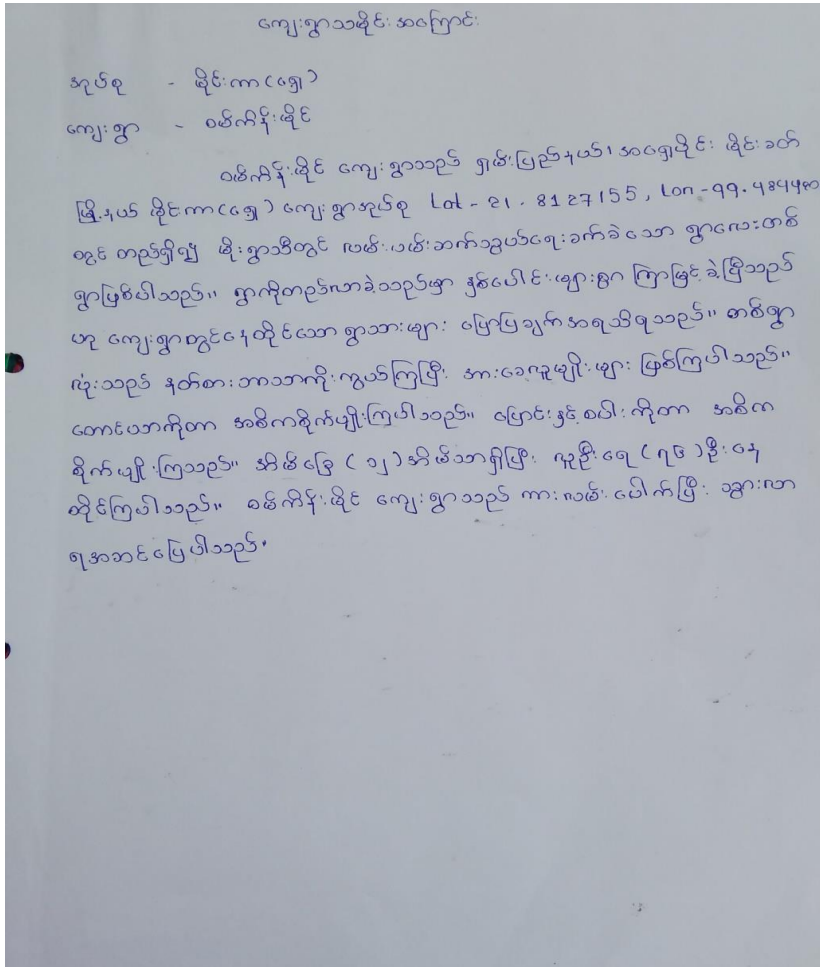 ကျေးရွာသမိုင်းအကြောင်း
အုပ်စု - မိုင်းကာ(ရှေ့)
ကျေးရွာ - ဝမ်ကိန်းမိုင်
ဝမ်ကိန်းမိုင် ကျေးရွာသည် ရှမ်းပြည်နယ်၊ အရှေ့ပိုင်း မိုင်းခတ်
မြို့နယ် မိုင်းကာ(ရှေ့) ကျေးရွာအုပ်စု Lat - 21.8127155, Lon - 99.
တွင် တည်ရှိ၍ မိုးရွာသီတွင် လမ်းပမ်းဆက်သွယ်ရေးခက်ခဲသော ရွာလေးတစ်
ရွာဖြစ်ပါသည်။ ရွာကိုတည်လာခဲ့သည်မှာ နှစ်ပေါင်းများစွာ ကြာမြင့်ခဲ့ပြီသည်
ဟု ကျေးရွာတွင်နေထိုင်သော ရွာသားများ ပြောပြချက်အရသိရသည်။ တစ်ရွာ
လုံးသည် နတ်စားဘာသာကိုးကွယ်ကြပြီး အားခေလူမျိုးများ ဖြစ်ကြပါသည်။
တောင်ယာကိုသာ အဓိကစိုက်ပျိုးကြပါသည်။ ပြောင်းနှင့်စပါးကိုသာ အဓိက
စိုက်ပျိုးကြသည်။ အိမ်ခြေ (၁၂)အိမ်သာရှိပြီး လူဦးရေ (၇၆)ဦးနေ
ထိုင်ကြပါသည်။ ဝမ်ကိန်းမိုင် ကျေးရွာသည် ကားလမ်းပေါက်ပြီး သွားလာ
ရအဆင်ပြေပါသည်။